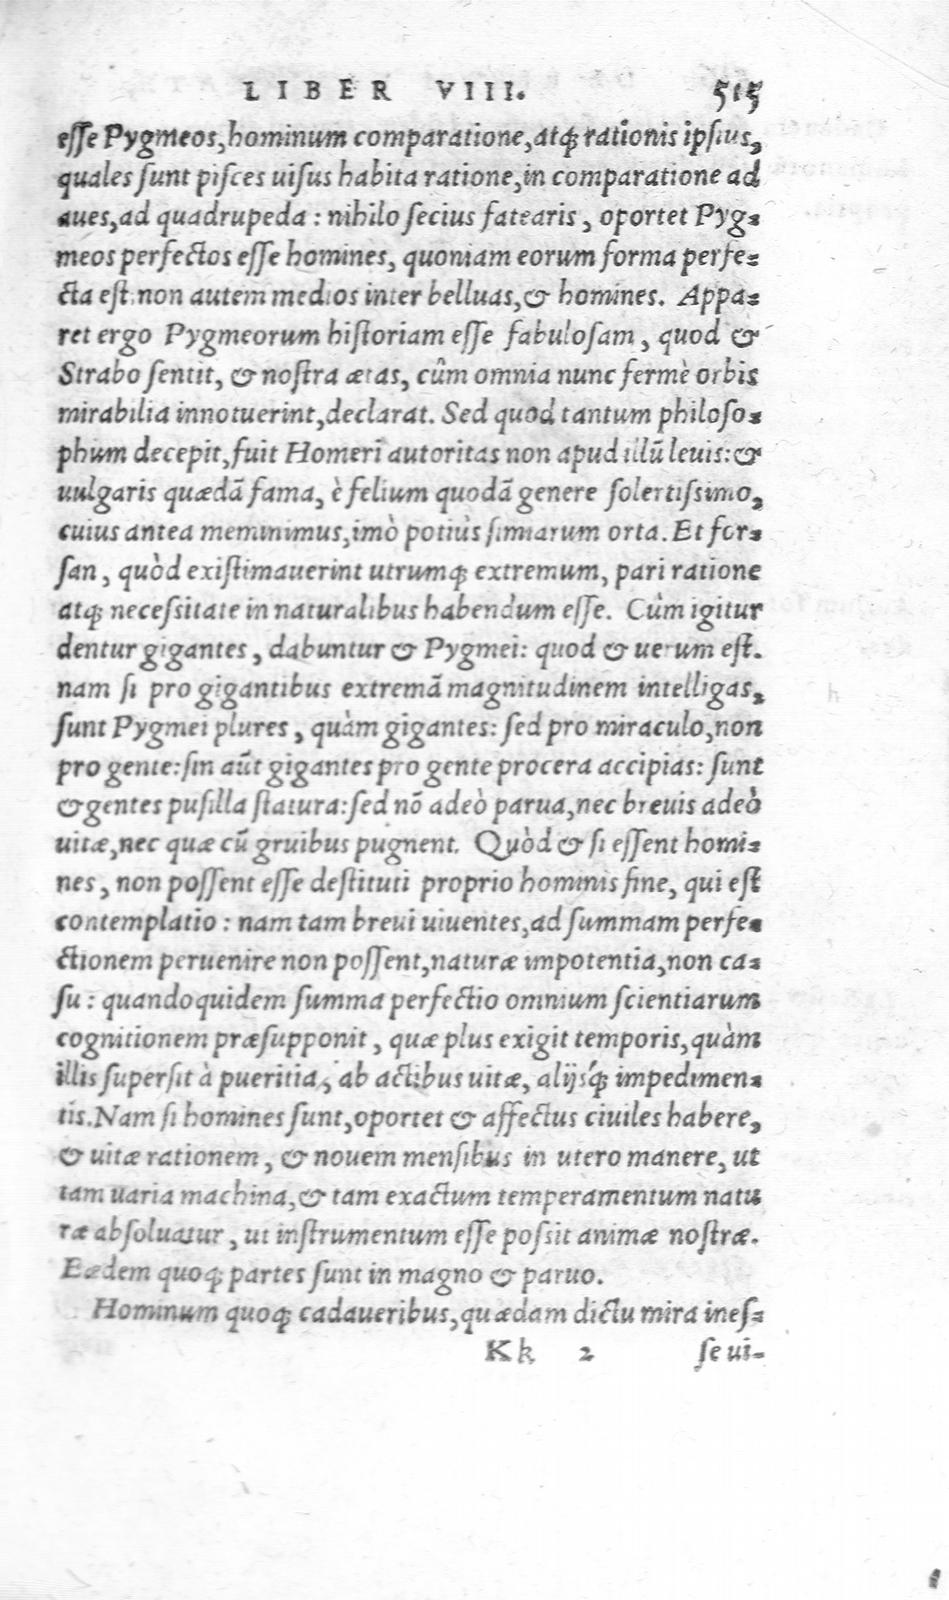 LIBER VIII. 515
eſſe Pygmeos, hominum comparatione, atq́; rationis ipſius,
quales ſunt piſces uiſus habita ratione, in comparatione ad
aues, ad quadrupeda: nihilo ſecius fatearis, oportet Pyg=
meos perfectos eſſe homines, quoniam eorum forma perfe=
cta est: non autem medios inter belluas, & homines. Appa=
ret ergo Pygmeorum hiſtoriam eſſe fabuloſam, quod &
Strabo ſentit, & noſtra ætas, cûm omnia nunc fermè orbis
mirabilia innotuerint, declarat. Sed quod tantum philoſo=
phum decepit, fuit Homeri autoritas non apud illū leuis: &
uulgaris quædā fama, è felium quodā genere ſolertiſsimo,
cuius antea meminimus, imò potiùs ſimiarum orta. Et for=
ſan, quòd exiſtimauerint utrumq; extremum, pari ratione
atq; neceſsitate in naturalibus habendum eſſe. Cûm igitur
dentur gigantes, dabuntur & Pygmei: quod & uerum eſt.
nam ſi pro gigantibus extremā magnitudinem intelligas,
ſunt Pygmei plures, quàm gigantes: ſed pro miraculo, non
pro gente: ſin aūt gigantes pro gente procera accipias: ſunt
& gentes puſilla ſtatura: ſed nō adeò parua, nec breuis adeò
uitæ, nec quæ cū gruibus pugnent. Quòd & ſi eſſent homi=
nes, non poſſent eſſe deſtituti proprio hominis fine, qui eſt
contemplatio: nam tam breui uiuentes, ad ſummam perfe=
ctionem peruenire non poſſent, naturæ impotentia, non ca=
ſu: quandoquidem ſumma perfectio omnium ſcientiarum
cognitionem præſupponit, quæ plus exigit temporis, quàm
illis ſuperſit à pueritia, ab actibus uitæ, alijsq́; impedimen=
tis. Nam ſi homines ſunt, oportet & affectus ciuiles habere,
& uitæ rationem, & nouem menſibus in utero manere, ut
tam uaria machina, & tam exactum temperamentum natu
ræ abſoluatur, ut inſtrumentum eſſe poſsit animæ noſtræ.
Eædem quoq; partes ſunt in magno & paruo.
Hominum quoq; cadaueribus, quædam dictu mira ineſ=
Kk 2 ſe ui=